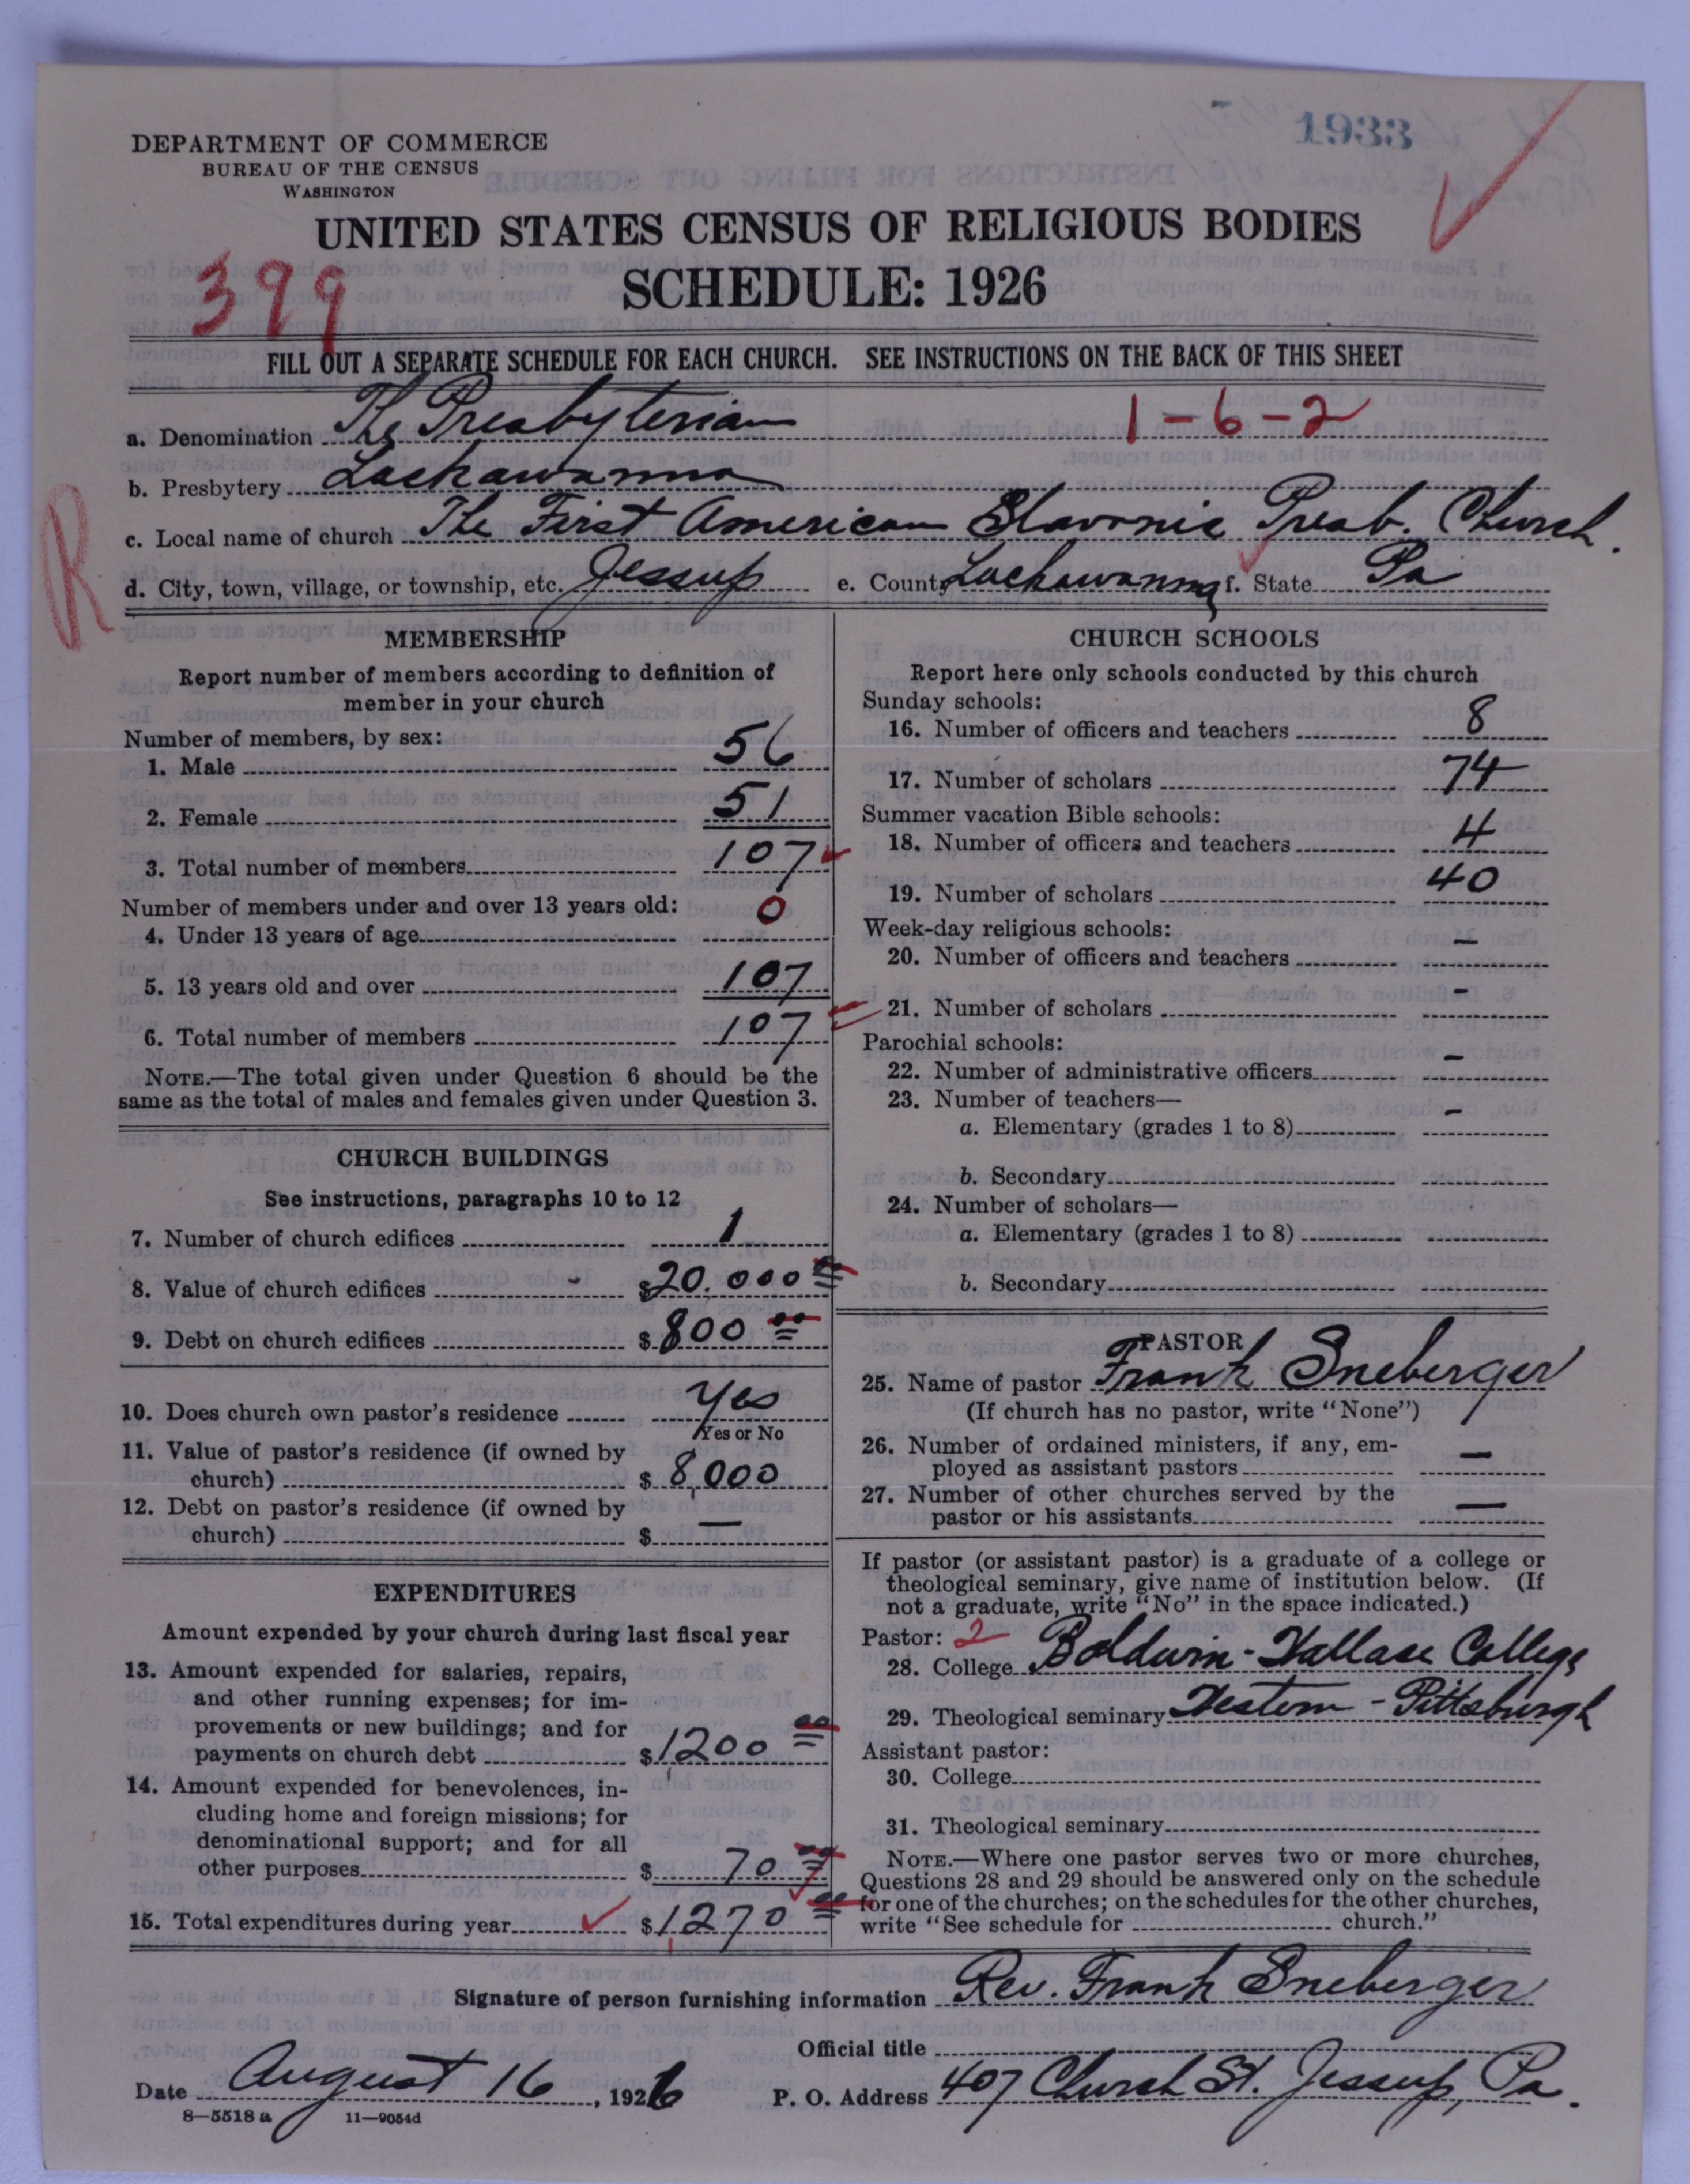 1933
DEPARTMENT OF COMMERCE
BUREAU OF THE CENSUS
WASHINGTON
UNITED STATES CENSUS OF RELIGIOUS BODIES
399
SCHEDULE: 1926
FILL OUT A SEPARATE SCHEDULE FOR EACH CHURCH. SEE INSTRUCTIONS ON THE BACK OF THIS SHEET
1-6-2
a. Denomination The Presbyterian
b. Presbytery Lackawanna
R
c. Local name of church The First American Slavonic Presb. Church.
d. City, town, village, or township, etc. Jessup e. County Lackawanna f. State Pa
MEMBERSHIP
Report number of members according to definition of
member in your church
Number of members, by sex:
1. Male 56
2. Female 51
3. Total number of members 107
Number of members under and over 13 years old:
4. Under 13 years of age 0
5. 13 years old and over 107
6. Total number of members 107
NOTE.—The total given under Question 6 should be the
same as the total of males and females given under Question 3.
CHURCH BUILDINGS
See instructions, paragraphs 10 to 12
7. Number of church edifices 1
8. Value of church edifices - $20.000 00
9. Debt on church edifices $800 00
10. Does church own pastor's residence Yes
Yes or No
11. Value of pastor's residence (if owned by
church) $8,000
12. Debt on pastor's residence (if owned by
church) $ —
EXPENDITURES
Amount expended by your church during last fiscal year
13. Amount expended for salaries, repairs,
and other running expenses; for im-
provements or new buildings; and for
payments on church debt $1200 00
14. Amount expended for benevolences, in-
cluding home and foreign missions; for
denominational support; and for all
other purposes $70 00
15. Total expenditures during year $1,270 00
CHURCH SCHOOLS
Report here only schools conducted by this church
Sunday schools:
16. Number of officers and teachers 8
17. Number of scholars 74
Summer vacation Bible schools:
18. Number of officers and teachers 4
19. Number of scholars 40
Week-day religious schools:
20. Number of officers and teachers —
21. Number of scholars -
Parochial schools:
22. Number of administrative officers -
23. Number of teachers—
a. Elementary (grades 1 to 8) -
b. Secondary
24. Number of scholars—
a. Elementary (grades 1 to 8)
b. Secondary
PASTOR
25. Name of pastor Frank Sneberger
(If church has no pastor, write "None")
26. Number of ordained ministers, if any, em-
ployed as assistant pastors —
27. Number of other churches served by the
pastor or his assistants —
If pastor (or assistant pastor) is a graduate of a college or
theological seminary, give name of institution below. (If
not a graduate, write "No" in the space indicated.)
Pastor: 2
28. College Baldwin-Wallace College
29. Theological seminary Western - Pittsburgh
Assistant pastor:
30. College
31. Theological seminary
NOTE.—Where one pastor serves two or more churches,
Questions 28 and 29 should be answered only on the schedule
for one of the churches; on the schedules for the other churches,
write "See schedule for church."
Signature of person furnishing information Rev. Frank Sneberger
Official title
Date August 16, 1926 P. O. Address 407 Church St. Jessup, Pa.
8—5518 a 11—9054d